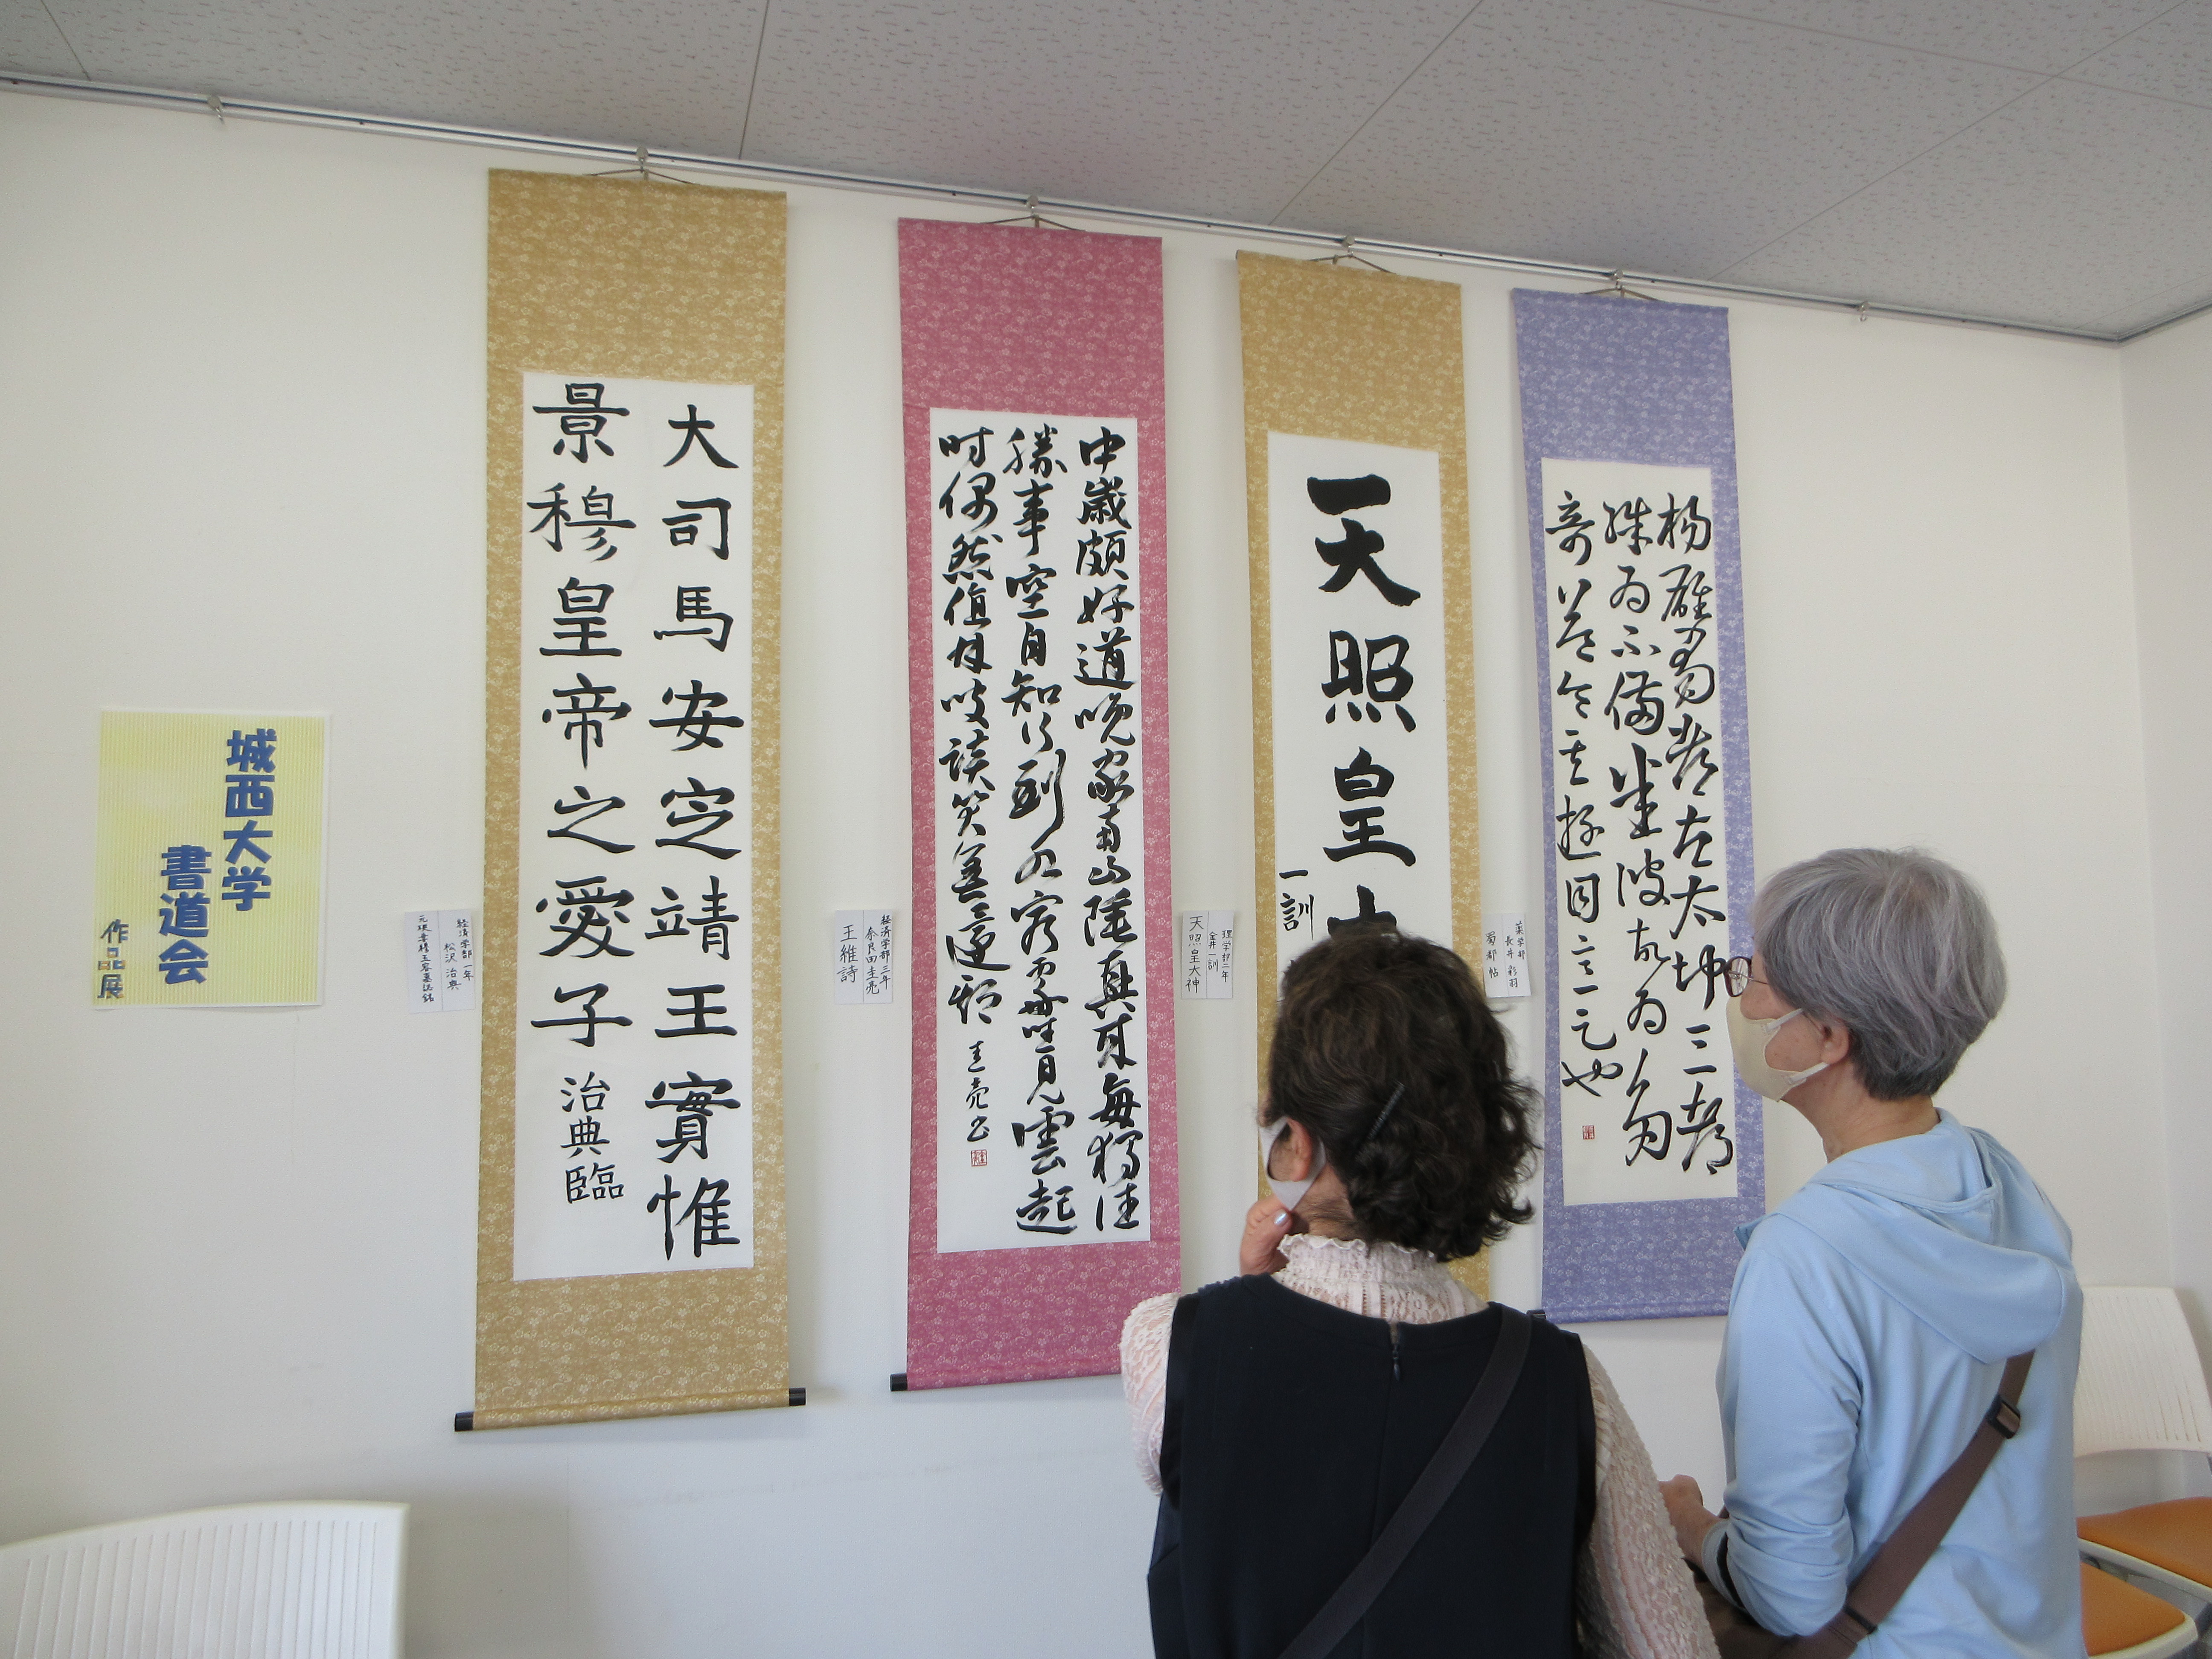 城西大学
書道会
作品展
大司馬安定靖王實惟
景穆皇帝之愛子
治典臨
経済学部一年
松沢治典
中歳頗好道晩家南山陲興来毎獨往
勝事空自知行到水窮處坐見雲起
時偶然値林叟談笑無還期
圭亮書
経済学部三年
奈良田圭亮
王維詩
天照皇大
一訓
理学部二年
金井一訓
天照皇大神
楊雄蜀都左太沖三都
殊為不備悉彼故為多
奇益令其遊目意足也
薬学科
長井彩羽
蜀都帖